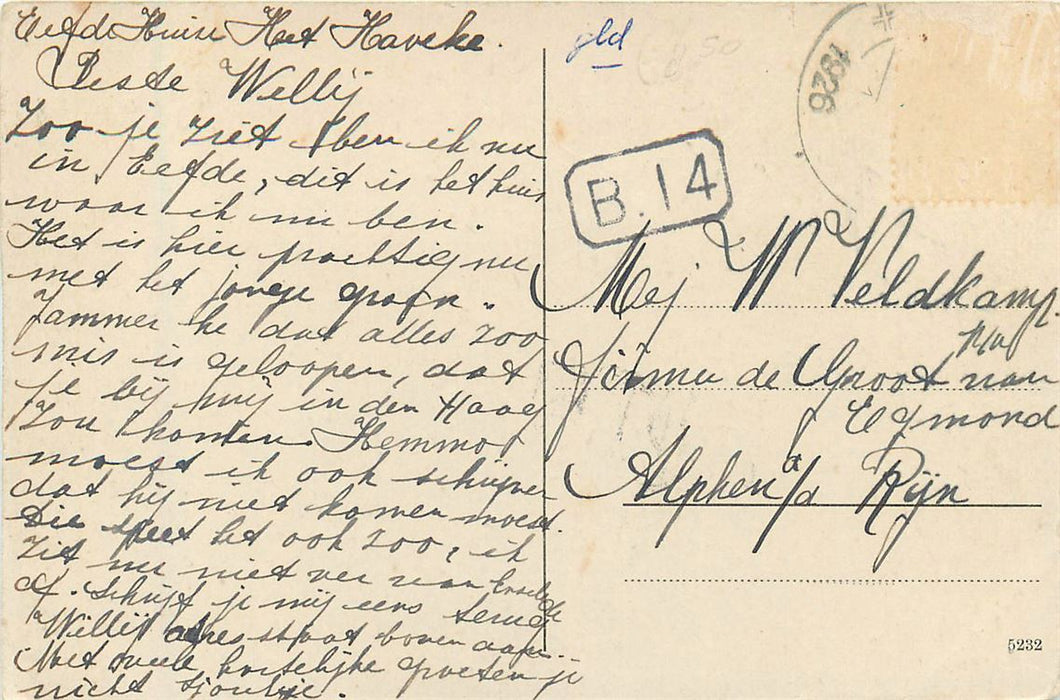 Eefde Huise Het Haveke.
Beste Willij
Zoo je ziet ben ik nu
in Eefde, dit is het huis
waar ik nu ben.
Het is hier prachtig nu
met het jonge groen.
Jammer he dat alles zoo
mis is geloopen, dat
je bij mij in den Haag
zou komen. Hemmo
moest ik ook schrijven
dat hij niet komen moest.
Die speet het ook zoo, ik
zit nu niet ver van
af. Schrijf je mij eens terug
Willij adres staat boven aan.
Met veele hartelijke groeten je
nicht
gld
50
1926
B.14
Mej W Veldkamp
Firma de Groot van
Egmond
Alphen a/d Rijn
5232